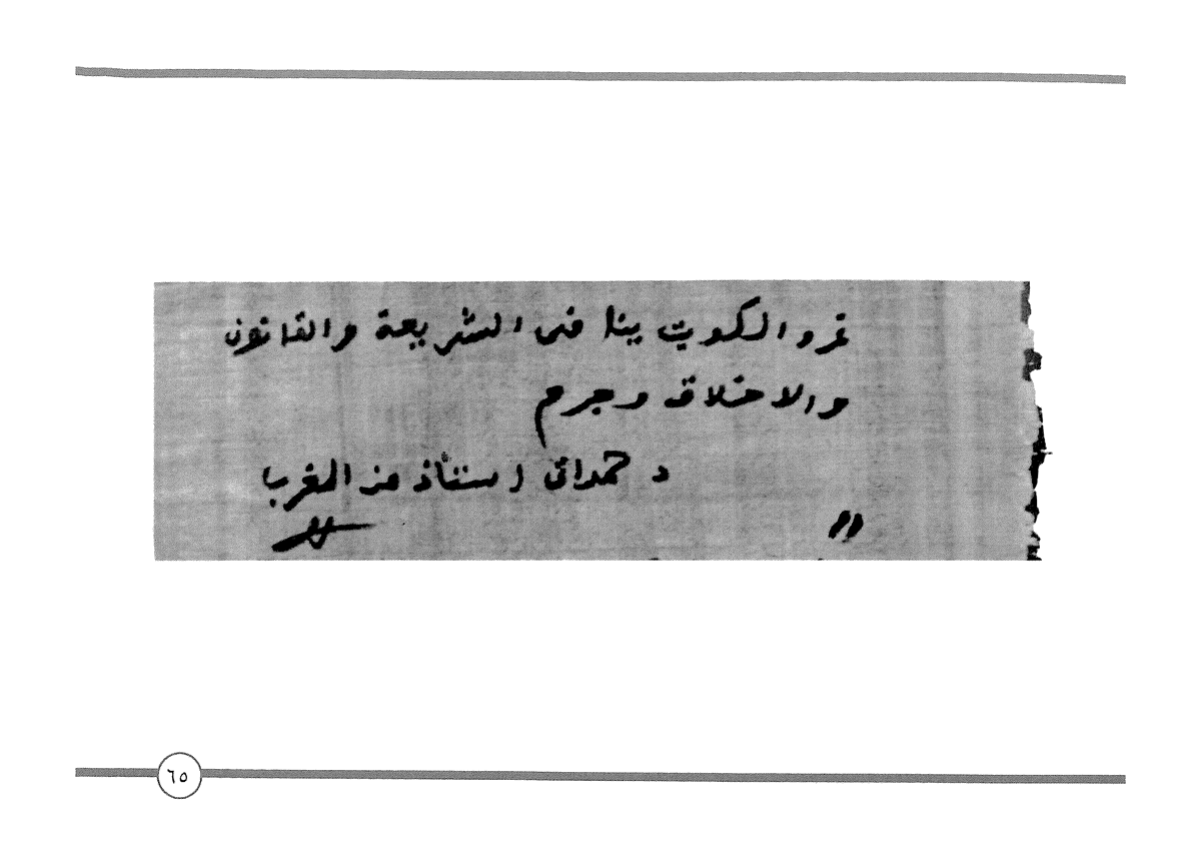 غزو الكويت ينا فى الشريعة والقانون
والاخلاق وجرم
د حمداتى استاذ من المغرب
"
٦٥